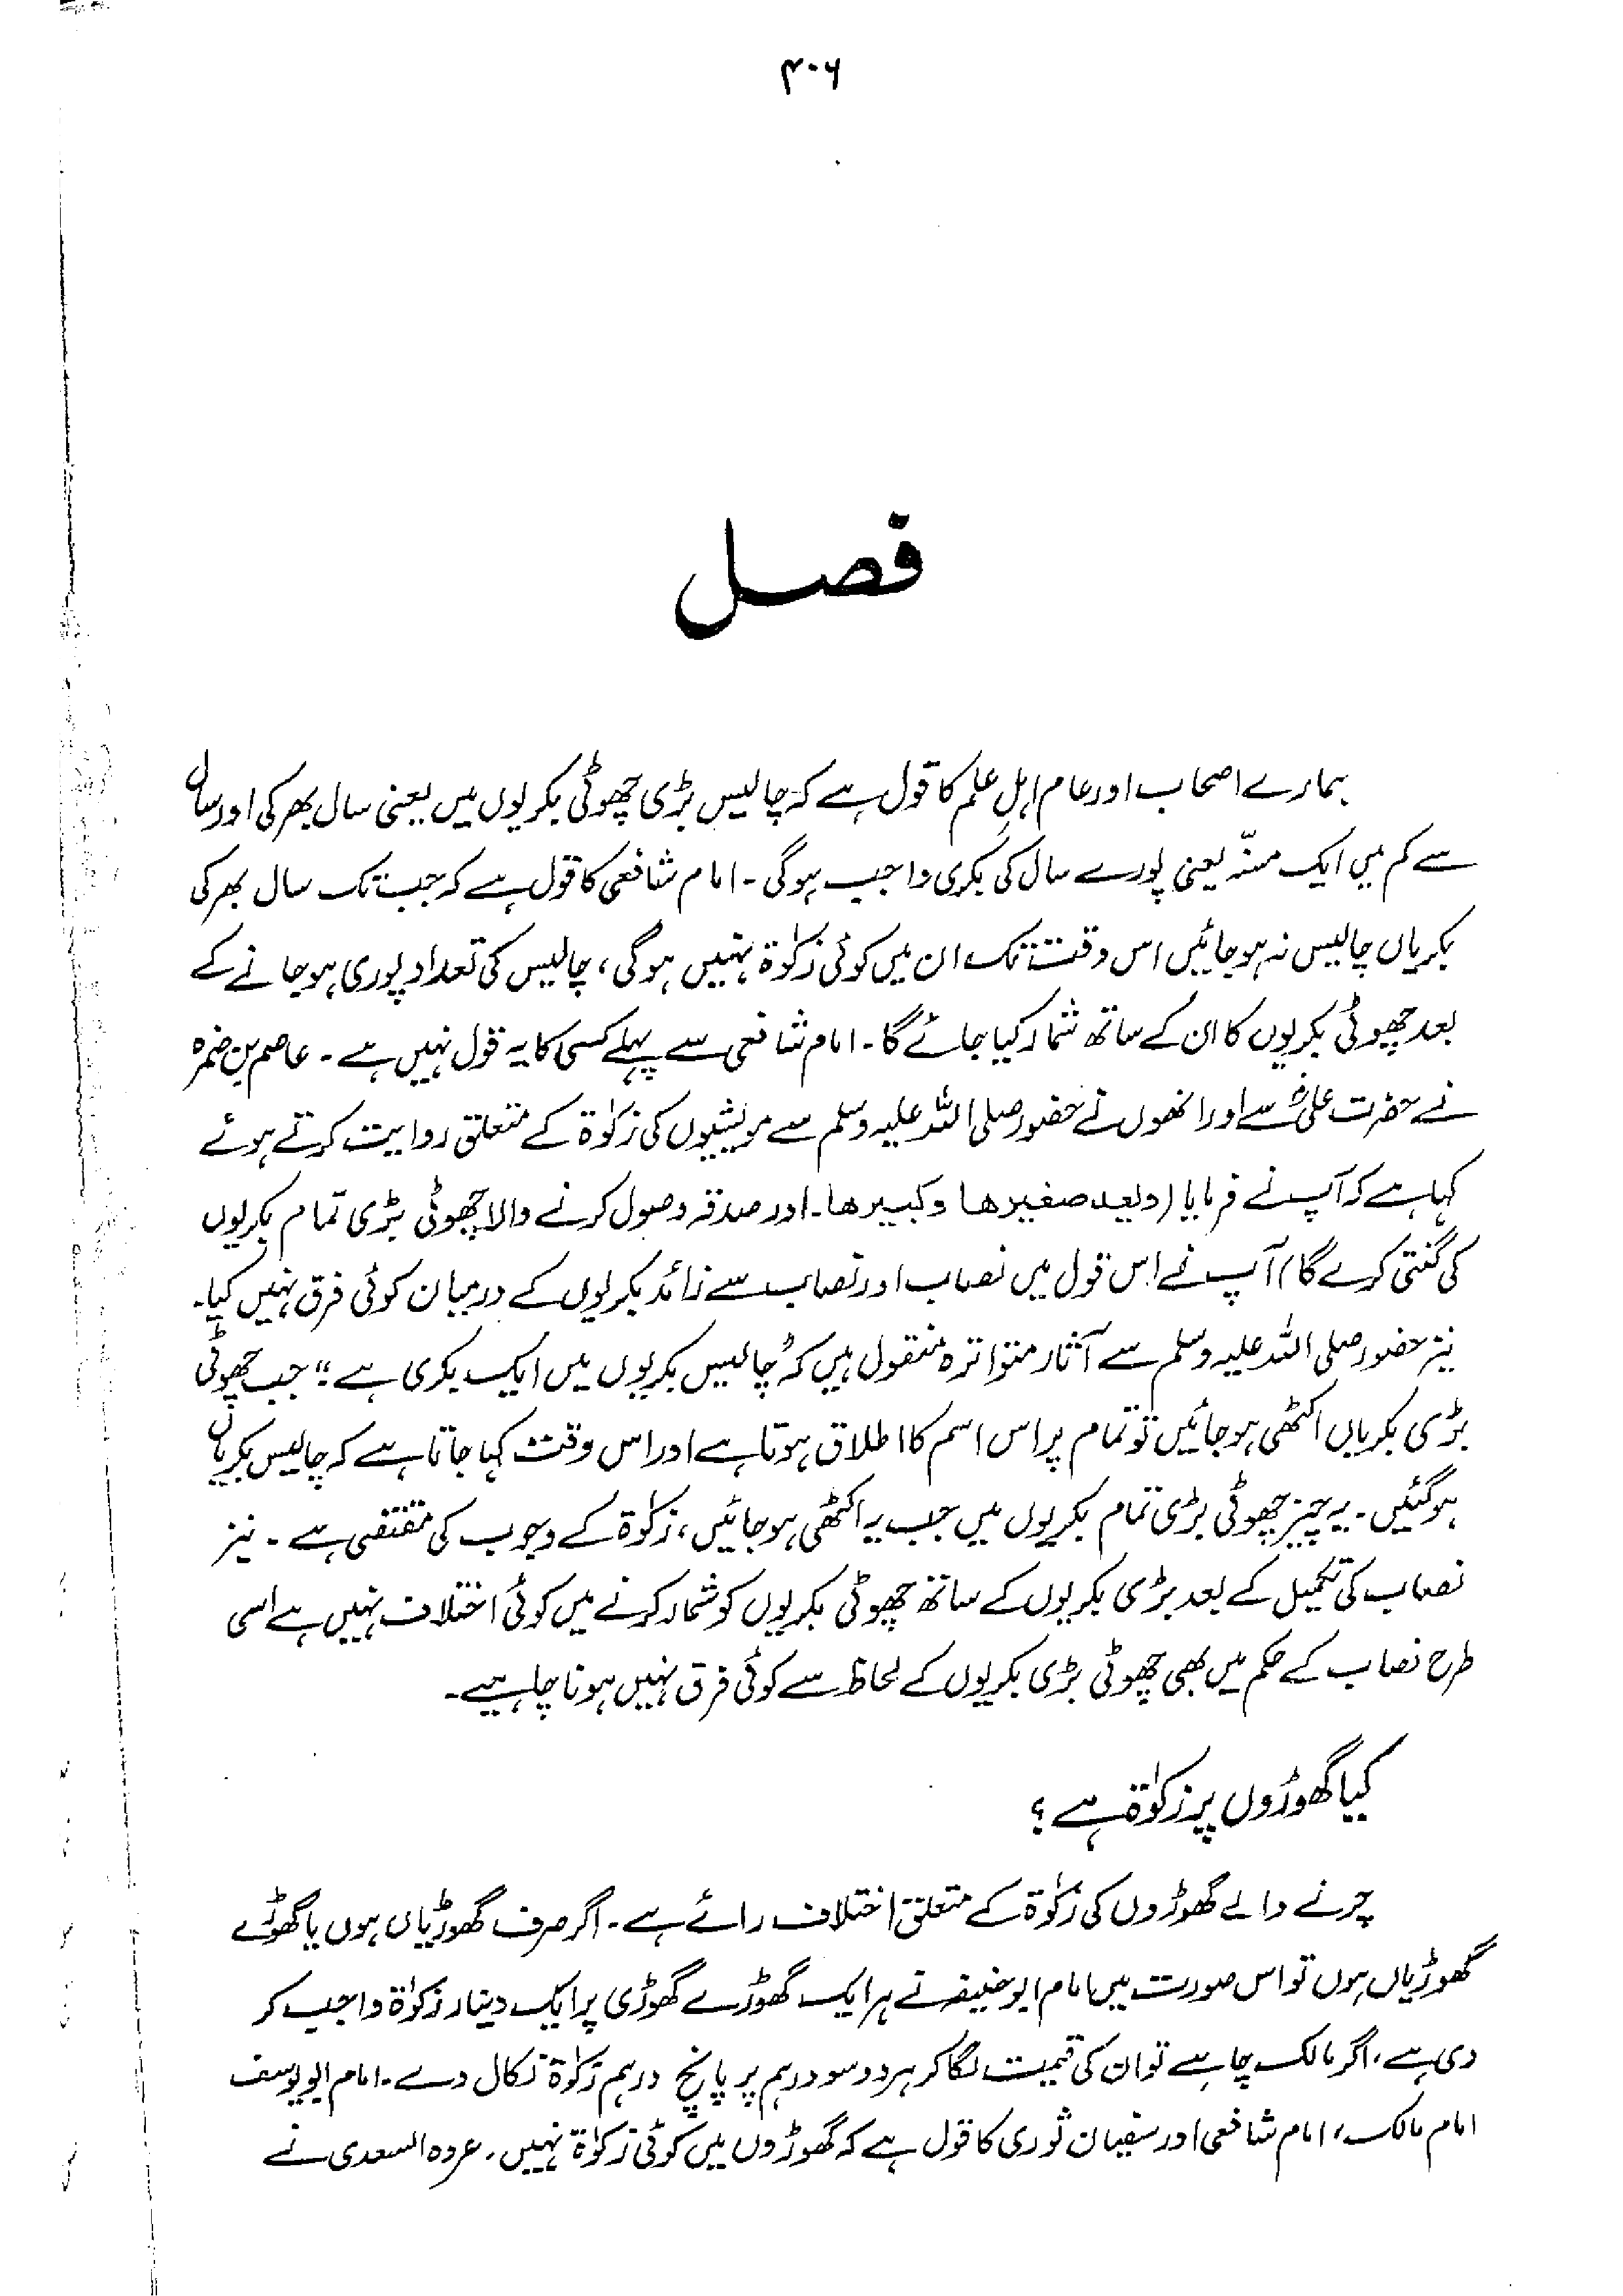 ۴۰۶
فصل
ہمارے اصحاب اور عام اہلِ علم کا قول ہے کہ چالیس بڑی چھوٹی بکریوں میں یعنی سال بھر کی اور سال
سے کم میں ایک مسنّہ یعنی پورے سال کی بکری واجب ہوگی۔ امام شافعی کا قول ہے کہ جب تک سال بھر کی
بکریاں چالیس نہ ہوجائیں اس وقت تک ان میں کوئی زکوٰۃ نہیں ہوگی، چالیس کی تعداد پوری ہوجانے کے
بعد چھوٹی بکریوں کا ان کے ساتھ شمار کیا جائے گا۔ امام شافعی سے پہلے کسی کا یہ قول نہیں ہے۔ عاصم بن ضمرہ
نے حضرت علیؓ سے اور انھوں نے حضور صلی اللہ علیہ وسلم سے مویشیوں کی زکوٰۃ کے متعلق روایت کرتے ہوئے
کہا ہے کہ آپ نے فرمایا (ویعد صغیرھا وکبیرھا۔ اور صدقہ وصول کرنے والا چھوٹی بڑی تمام بکریوں
کی گنتی کرے گا) آپ نے اس قول میں نصاب اور نصاب سے زائد بکریوں کے درمیان کوئی فرق نہیں کیا۔
نیز حضور صلی اللہ علیہ وسلم سے آثار متواترہ منقول ہیں کہ "چالیس بکریوں میں ایک بکری ہے" جب چھوٹی
بڑی بکریاں اکٹھی ہوجائیں تو تمام پر اس اسم کا اطلاق ہوتا ہے اور اس وقت کہا جاتا ہے کہ چالیس بکریاں
ہوگئیں۔ یہ چیز چھوٹی بڑی تمام بکریوں میں جب یہ اکٹھی ہوجائیں، زکوٰۃ کے وجوب کی مقتضی ہے۔ نیز
نصاب کی تکمیل کے بعد بڑی بکریوں کے ساتھ چھوٹی بکریوں کو شمار کرنے میں کوئی اختلاف نہیں ہے اسی
طرح نصاب کے حکم میں بھی چھوٹی بڑی بکریوں کے لحاظ سے کوئی فرق نہیں ہونا چاہیے۔
کیا گھوڑوں پر زکوٰۃ ہے؟
چرنے والے گھوڑوں کی زکوٰۃ کے متعلق اختلاف رائے ہے۔ اگر صرف گھوڑیاں ہوں یا گھوڑے
گھوڑیاں ہوں تو اس صورت میں امام ابوحنیفہ نے ہر ایک گھوڑے گھوڑی پر ایک دینار زکوٰۃ واجب کر
دی ہے، اگر مالک چاہے تو ان کی قیمت لگا کر ہر دو سو درہم پر پانچ درہم زکوٰۃ نکال دے۔ امام ابویوسف
امام مالک، امام شافعی اور سفیان ثوری کا قول ہے کہ گھوڑوں میں کوئی زکوٰۃ نہیں۔ عروہ السعدی نے